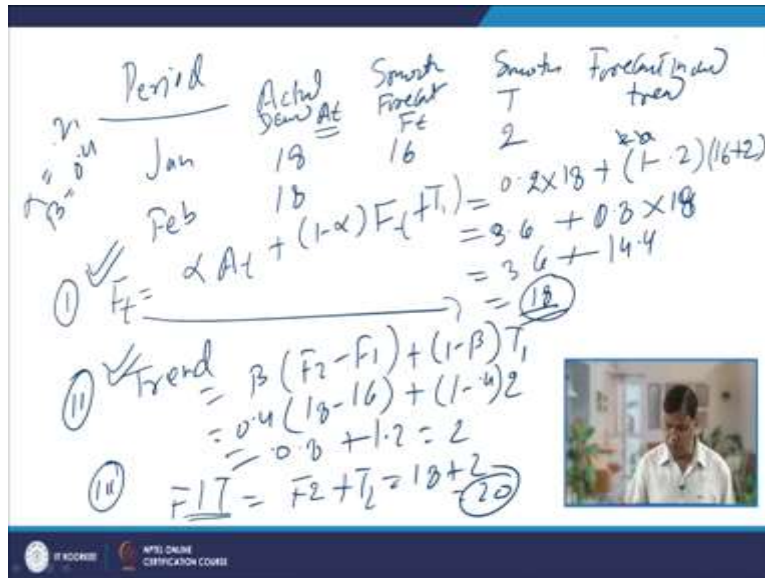 Period Actual Smooth Smooth Forecast in
Dem At Forecast T trend
Ft
Jan 18 16 2
Feb 18
α = .2
β = 0.4
I Ft = α At + (1-α) Ft + T1) = 0.2 x 18 + (1-.2)(16+2)
= 3.6 + 0.8 x 18
= 3.6 + 14.4
= 18
II Trend = β (F2 - F1) + (1-β) T1
= 0.4 (18 - 16) + (1-.4) 2
= 0.8 + 1.2 = 2
III FIT = F2 + T2 = 18 + 2 = 20
IIT ROORKEE NPTEL ONLINE
CERTIFICATION COURSE